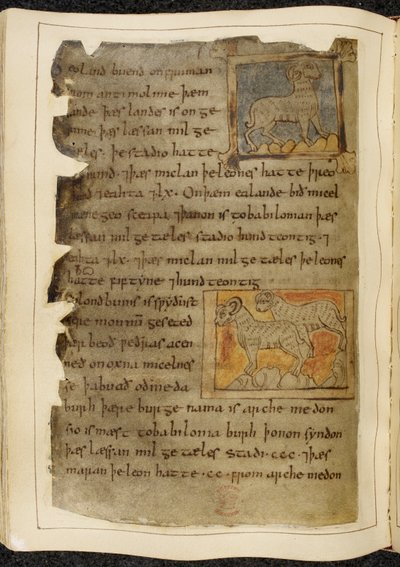 eoland buend onfruman
from antimolime þæm
lande þæs landes is on ge
rime þæs læssan mil ge
teles þe stadio hatte
hund ⁊þæs miclan þe leones hatte þreo
hund ⁊eahta ⁊lx. Onþæm ealande bið micel
mænegeo sceapa ⁊þanon is tobabilonian þæs
læssan mil ge tæles stadio hund teontig. ⁊
eahta ⁊lx. ⁊þæs miclan mil ge tæles þe leones
hatte fiftyne ⁊hund teontig
eolond bunis is swyðust
cype monnū geseted
þær beoð weðras acen
ned on oxna micelnes
se þabuað oð meda
burh þære burge nama is arche medon
sio is mæst tobabilonia burh þonon syndon
þæs læssan mil ge tæles stadi. ccc. ⁊þæs
maran þe leon hatte. cc. from arche medon